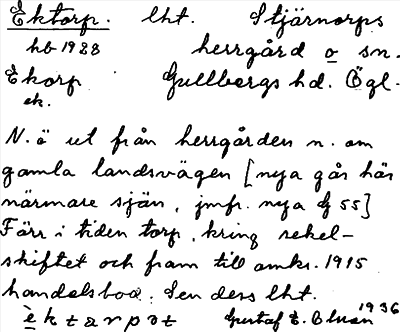 Ektorp. lht. Stjärnorps
hb 1928 herrgård o sn.
Ekorp Gullbergs hd. Ögl.
ek.
N. ö ut från herrgården n. om
gamla landsvägen [nya går här
närmare sjön, jmfr. nya G 55]
Förr i tiden torp, kring sekel-
skiftet och fram till omkr. 1915
handelsbod. Sen dess lht.
Gustaf E. Olsson 1936